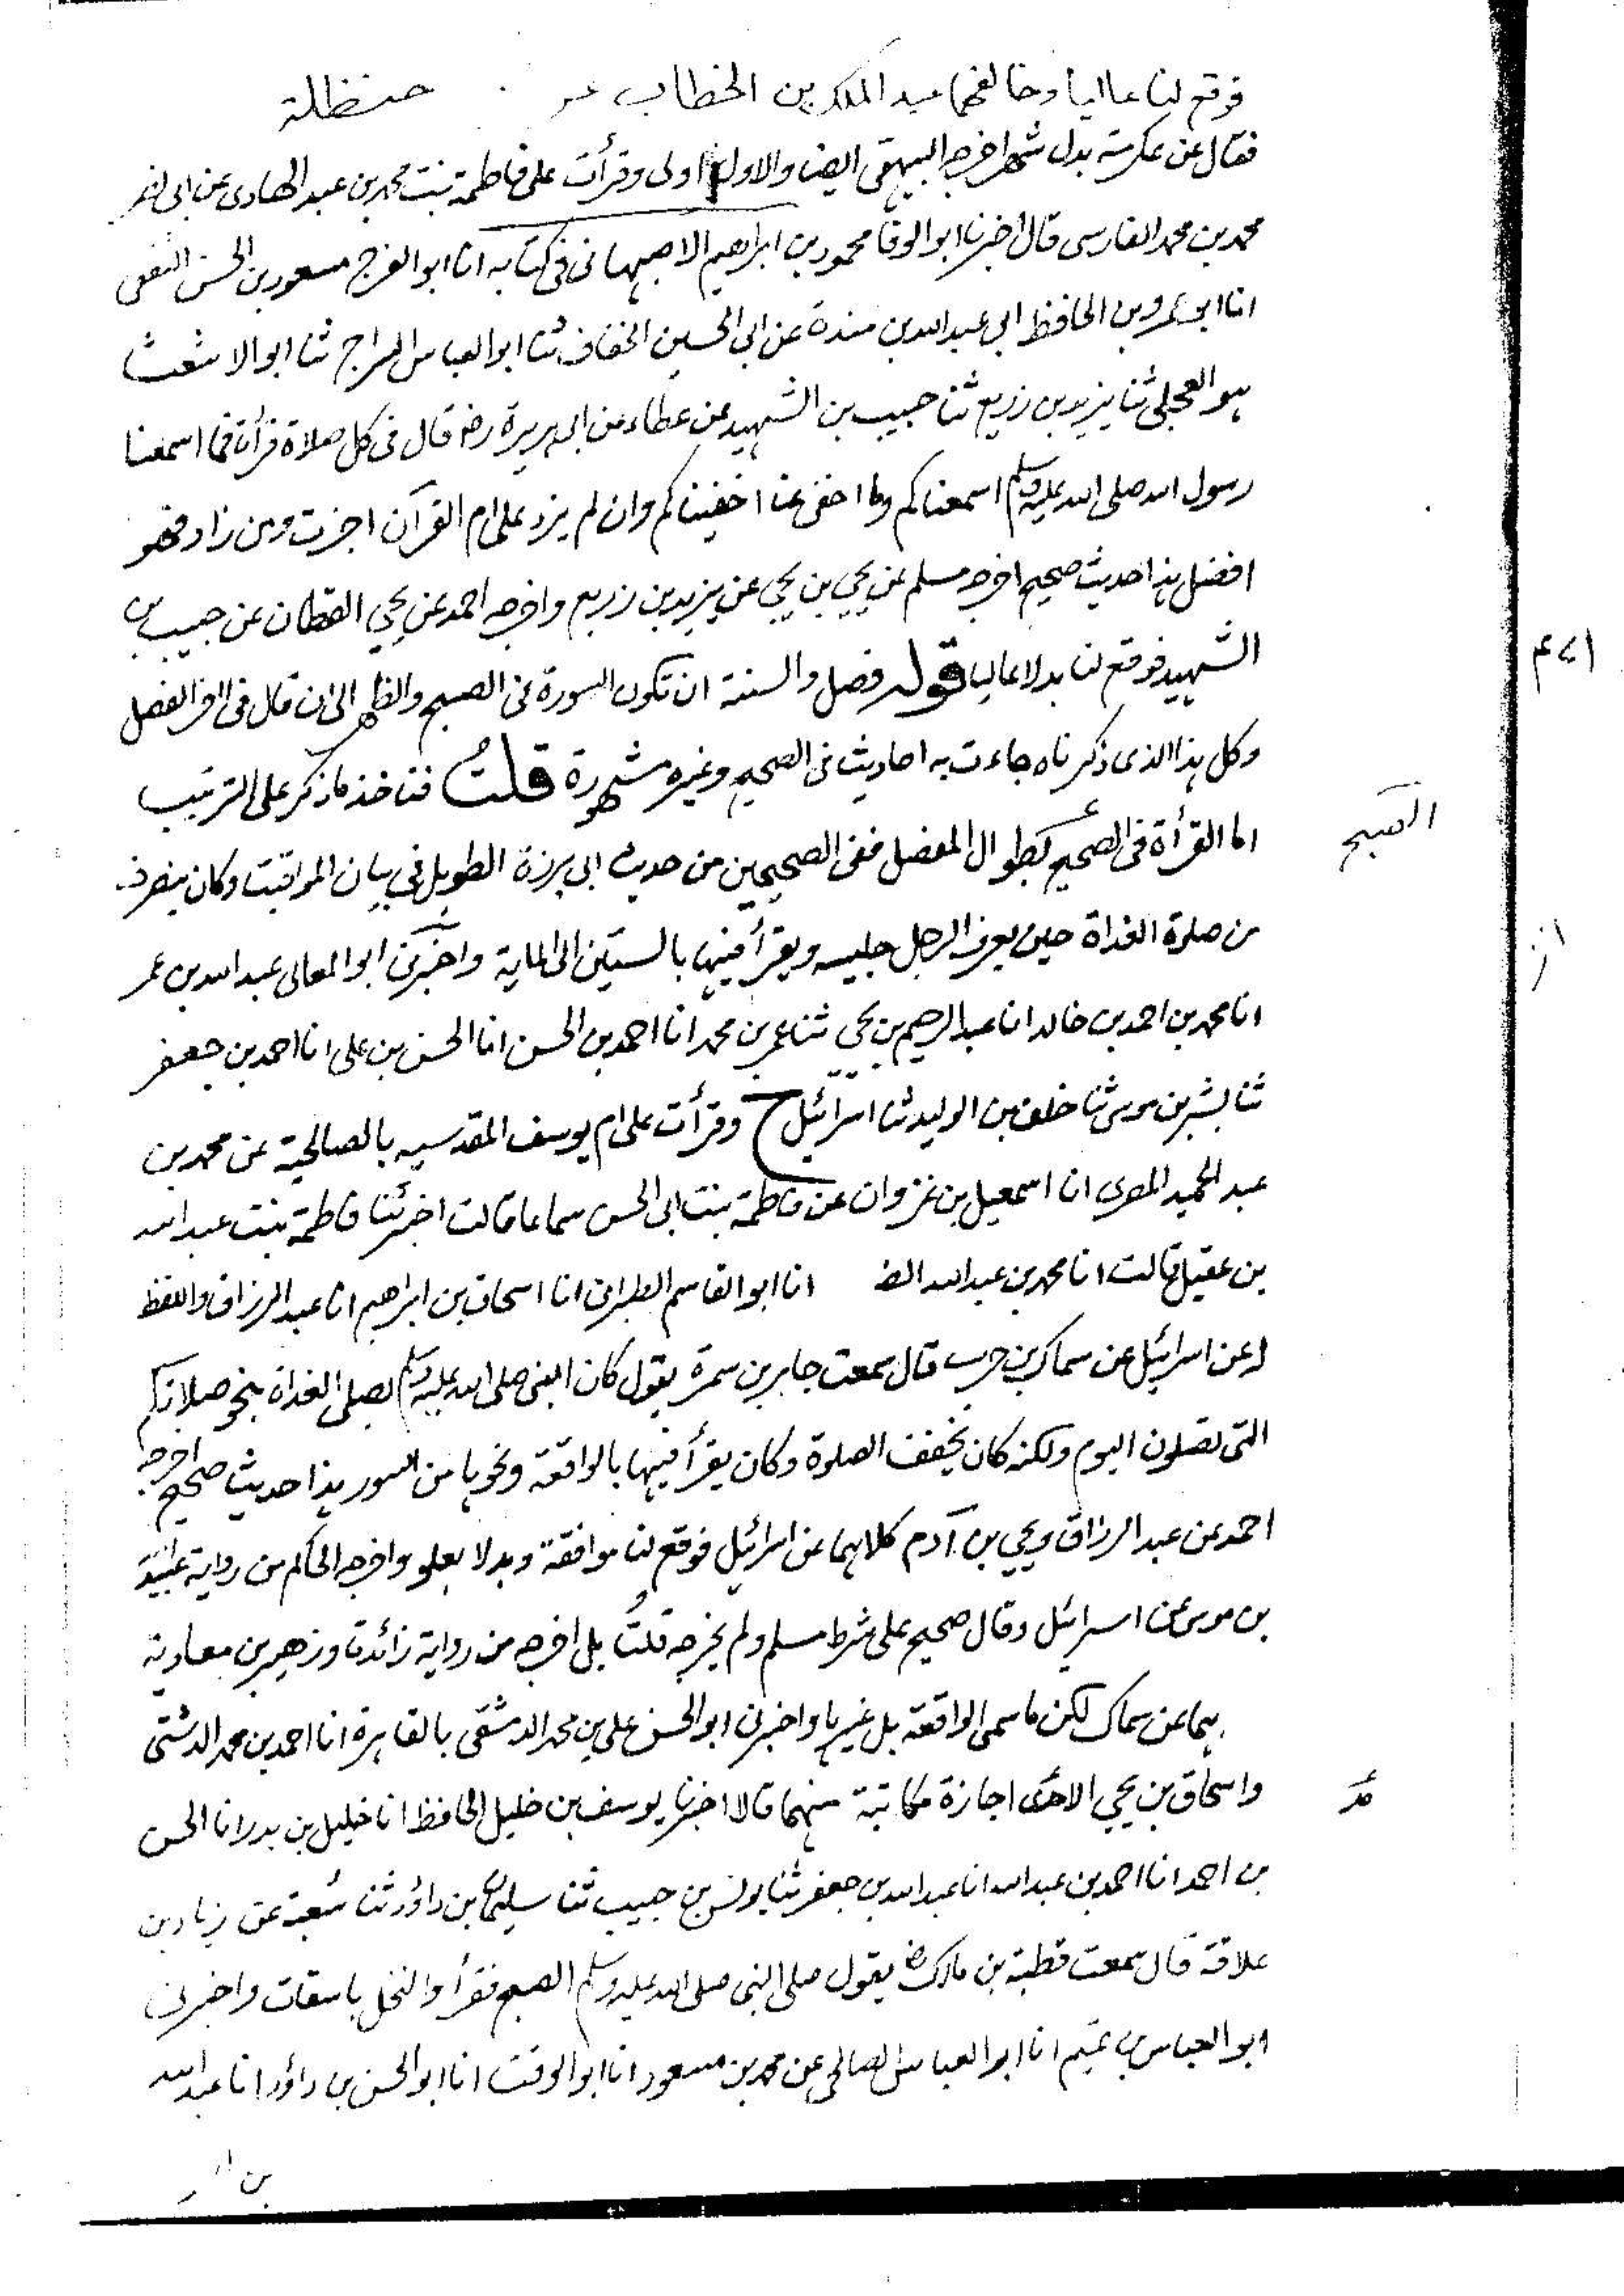 فوقع لنا عاليا وخالفهما عبد الملك بن الخطاب عن حنظلة
فقال عن عكرمة بدل شهر اخرجه البيهقى ايضا والاول اولى وقرأت على فاطمة بنت محمد بن عبد الهادى عن ابى نصر
محمد بن محمد الفارسى قال اخبرنا ابو الوفا محمود بن ابراهيم الاصبهانى فى كتابه انا ابو الفرج مسعود بن الحسن الثقفى
انا ابو عمرو بن الحافظ ابى عبد الله بن مندة عن ابى الحسين الخفاف ثنا ابو العباس السراج ثنا ابو الاشعث
هو العجلى ثنا يزيد بن زريع ثنا حبيب بن الشهيد عن عطاء عن ابى هريرة رضـ قال فى كل صلاة قرأة فما اسمعنا
رسول الله صلى الله عليه وسلم اسمعناكم وما اخفى عنا اخفيناكم وان لم يزد على ام القرآن اجزت ومن زاد فهو
افضل هذا حديث صحيح اخرجه مسلم عن يحيى بن يحيى عن يزيد بن زريع واخرجه احمد عن يحيى القطان عن حبيب بن
الشهيد فوقع لنا بدلا عاليا قوله فصل والسنة ان تكون السورة فى الصبح والظهر الى ان قال فى اخر الفصل
وكل هذا الذى ذكرناه جاءت به احاديث فى الصحيح وغيره مشهورة قلتُ فنأخذ ما ذكر على الترتيب
اما القرأة فى الصحيح بطوال المفصل ففى الصحيحين من حديث ابى برزة الطويل فى بيان المواقيت وكان ينصرف
الصبح
من صلوة الغداة حين يعرف الرجل جليسه ويقرأ فيها بالستين الى الماية واخبرنى ابو المعالى عبد الله بن عمر
انا محمد بن احمد بن خالد انا عبد الرحيم بن يحيى ثنا عمر بن محمد انا احمد بن الحسن انا الحسن بن على انا احمد بن جعفر
ثنا بشر بن موسى ثنا خلف بن الوليد ثنا اسرائيل ح وقرأت على ام يوسف المقدسيه بالصالحية عن محمد بن
عبد الحميد المصرى انا اسمعيل بن غزوان عن فاطمة بنت ابى الحسن سماعا قالت اخبرتنا فاطمة بنت عبد الله
بن عقيل قالت انا محمد بن عبد الله الضـ انا ابو القاسم الطبرانى انا اسحاق بن ابراهيم انا عبد الرزاق واللفظ
له عن اسرائيل عن سماك بن حرب قال سمعت جابر بن سمرة يقول كان النبى صلى الله عليه وسلم يصلى الغداة بنحو صلاتكم
التى تصلون اليوم ولكنه كان يخفف الصلوة وكان يقرأ فيها بالواقعة ونحوها من السور هذا حديث صحيح اخرجه
احمد عن عبد الرزاق ويحيى بن آدم كلاهما عن اسرائيل فوقع لنا موافقة وبدلا بعلو واخرجه الحاكم من رواية عبيد
بن موسى عن اسرائيل وقال صحيح على شرط مسلم ولم يخرجه قلتُ بل اخرجه من رواية زائدة وزهير بن معاوية
هما عن سماك لكن ما سمى الواقعة بل غيرها واخبرنى ابو الحسن على بن محمد الدمشقى بالقاهرة انا احمد بن محمد الدشتى
واسحاق بن يحيى الامدى اجازة مكاتبة منهما قالا اخبرنا يوسف بن خليل الحافظ انا خليل بن بدر انا الحسن
بن احمد انا احمد بن عبد الله انا عبد الله بن جعفر ثنا يونس بن حبيب ثنا سليمان بن داؤد ثنا شعبة عن زياد بن
علاقة قال سمعت قطبة بن مالك رضـ يقول صلى النبى صلى الله عليه وسلم الصبح فقرأ والنخل باسقات واخبرنى
ابو العباس بن تميم انا ابو العباس الصالحى عن محمد بن مسعود انا ابو الوقت انا ابو الحسن بن داؤد انا عبد الله